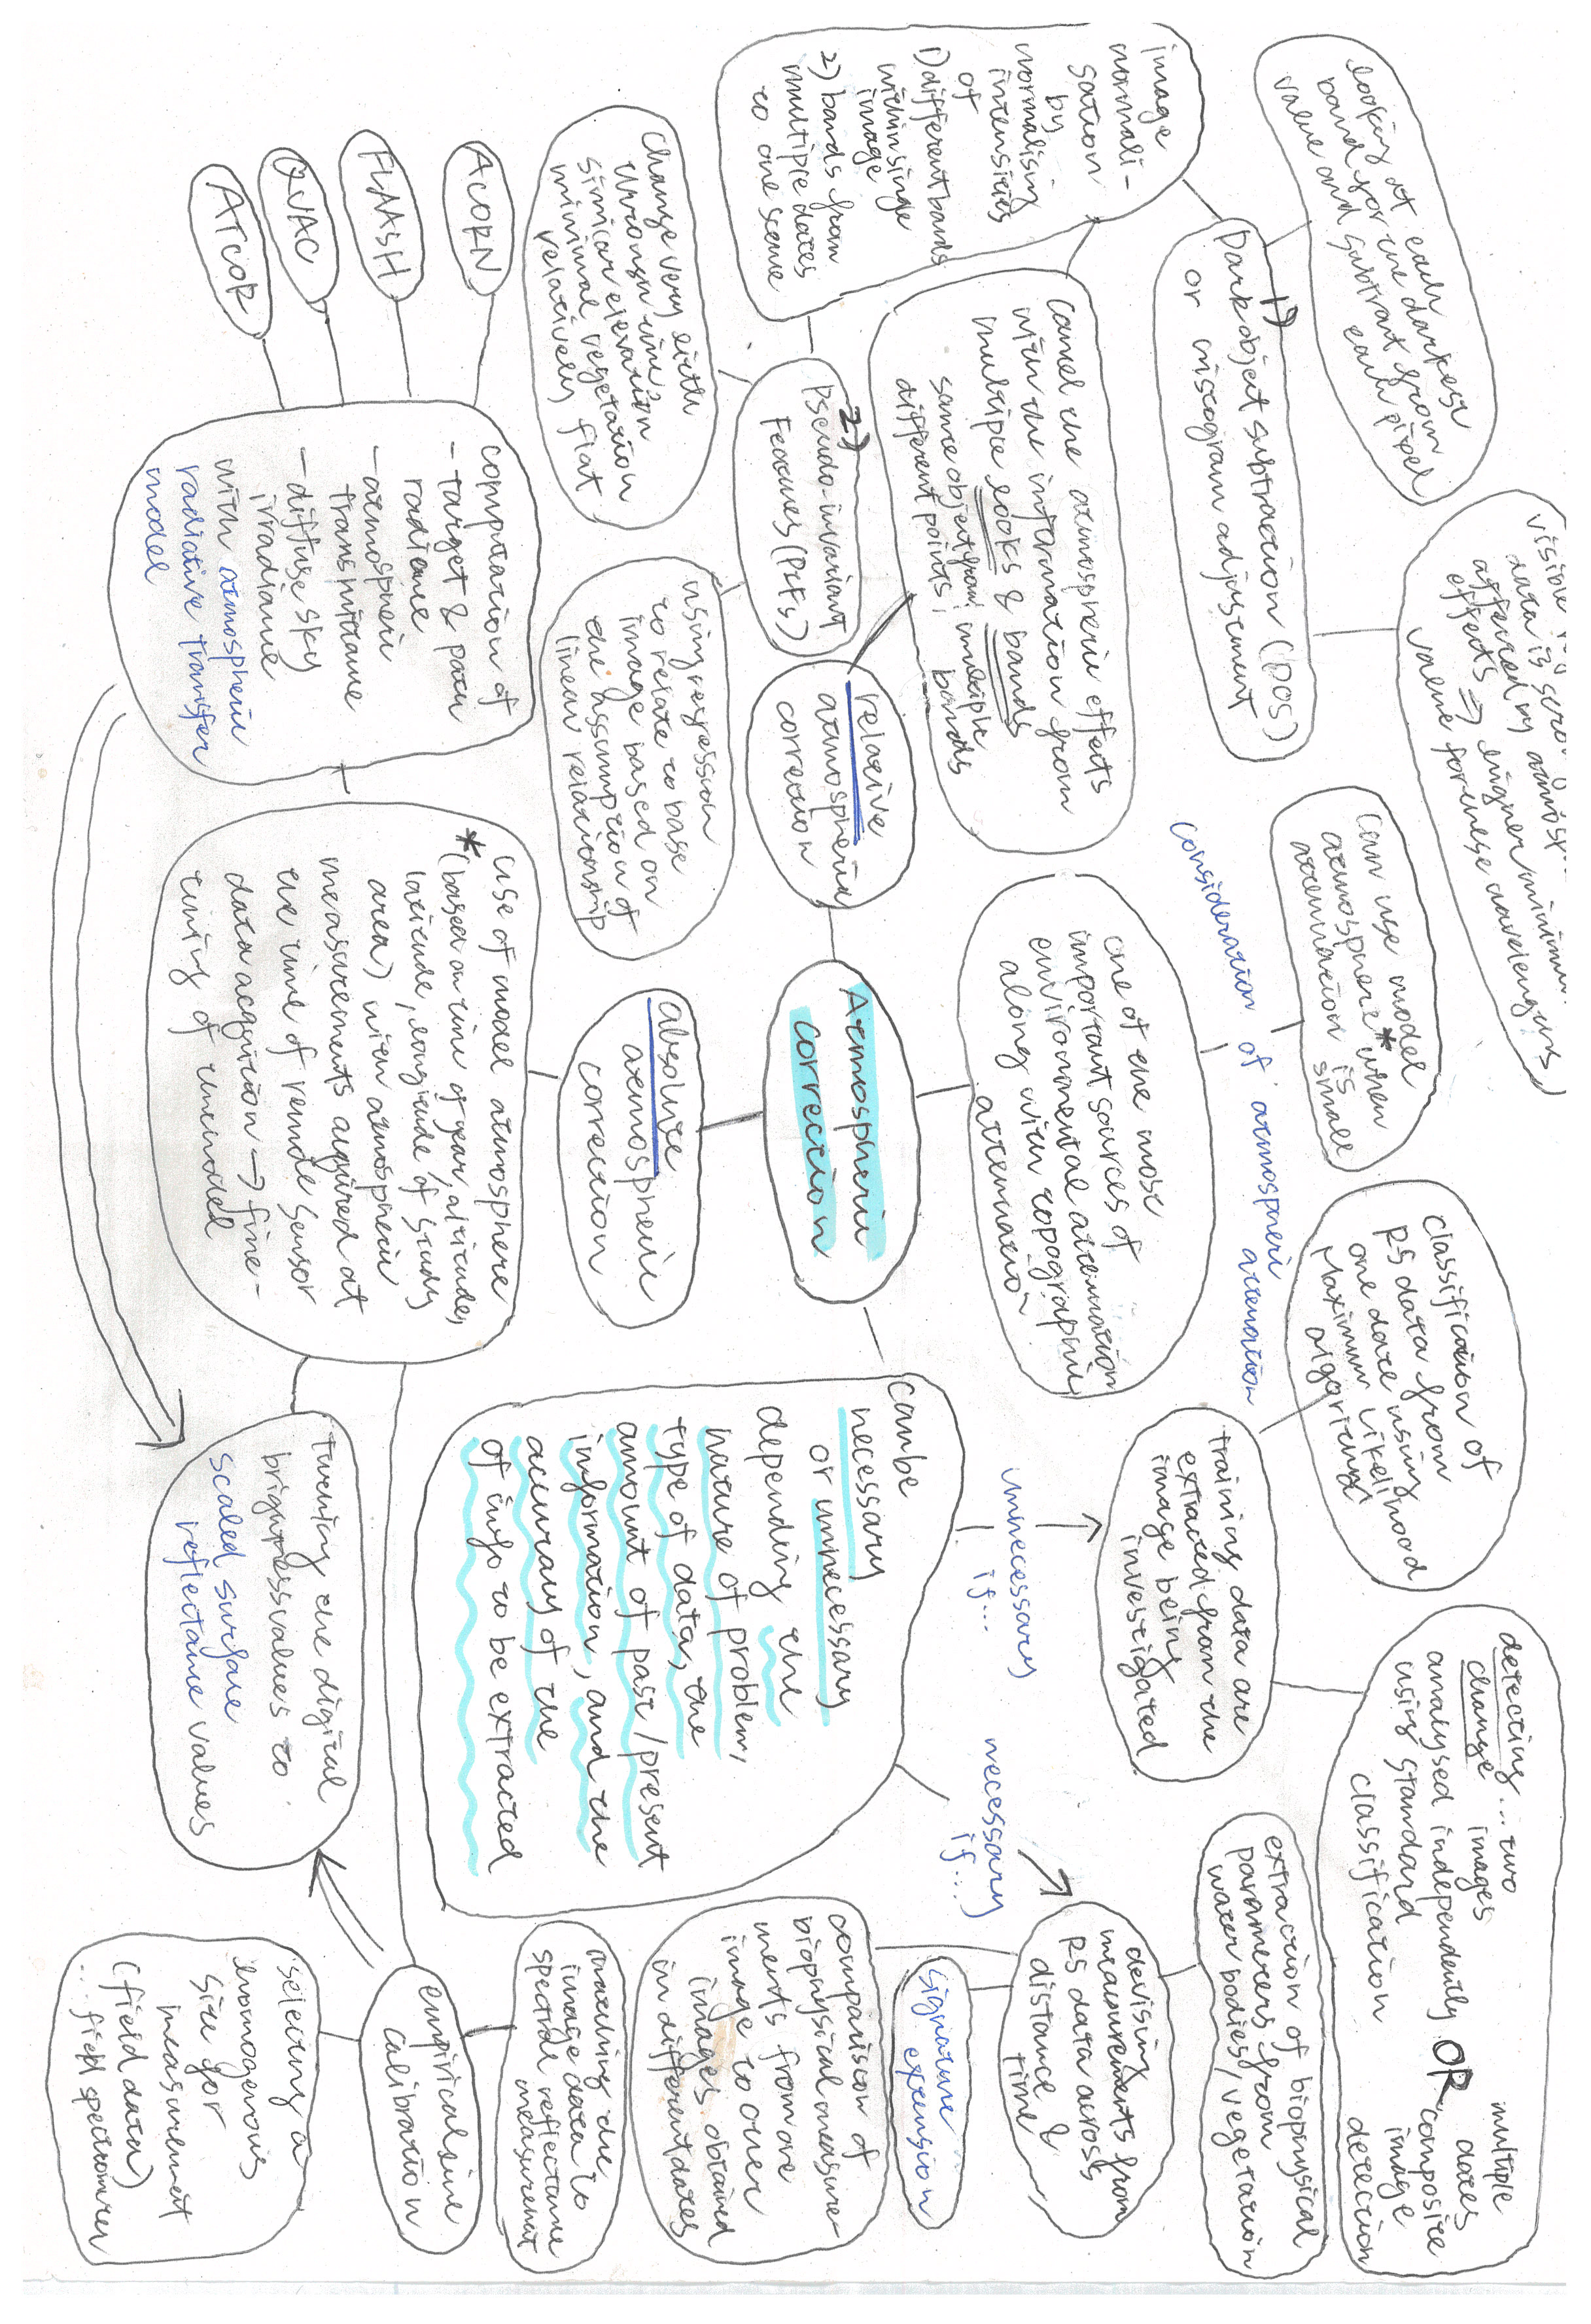 visible
data is
affected by atmosp
effects ⇒ higher minimu
value for these wavelengths
looking at each
band for the darkest
value and subtract from
each pixel
1)
Dark object subtraction (DOS)
or histogram adjustment
can use model
atmosphere* when
attenuation is
small
consideration of atmospheri
attenation
classification of
RS data from
one date using
Maximum Likelihood
algorithm
detecting ... two
change images
analysed independently
using standard
classification
OR
multiple
dates
composite
image
detection
extraction of biophysical
parameters from
water bodies/vegetation
training data are
extracted from the
image being
investigated
devising
measurements from
RS data across
distance &
time
unnecessary
if...
necessary
if...
signature
extension
image
normali-
sation
by
normalising
intensities
of
1) different bands
within single
image
2) bands from
multiple dates
to one scene
cancel the atmospheric effects
with the information from
multiple looks & bands
same object from
different points
multiple
bands
one of the most
important sources of
environmental attenuation
along with topographic
attenuation
2)
Pseudo-invariant
Features (PIFs)
relative
atmospheric
correction
Atmospheric
correction
can be
necessary
or unnecessary
depending the
nature of problem,
type of data, the
amount of past/present
information, and the
accuracy of the
of info to be extracted
comparison of
biophysical measure-
ments from one
image to over
images obtained
in different dates
change very little
through time,
similar elevation
minimal vegetation
relatively flat
using regression
to relate to base
image based on
the assumption of
linear relationship
absolute
atmospheric
correction
matching the
image data to
spectral reflectance
measuremet
empirical line
calibration
ACORN
FLAASH
QUAC
ATCOR
computation of
- target & path
radiance
- atmospheri
transmittance
- diffuse sky
irradiance
with atmospheric
radiative transfer
model
use of model atmosphere
* (based on time of year, altitude,
latitude, longitude of study
area) with atmospheric
measurements acquired at
the time of remote sensor
data acquition → fine-
tuning of the model
turning the digital
brightness values to
scaled surface
reflectance values
selecting a
homogenous
site for
measurement
(field data)
... field spectrometer